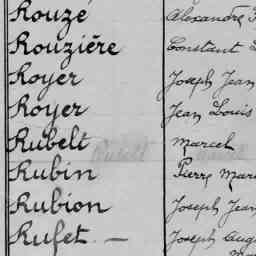 Rouzé Alexandre
Rouzière Constant
Royer Joseph Jean
Royer Jean Louis
Rubelt Marcel
Rubin Pierre Mar
Rubion Joseph Jean
Rufet — Joseph Aug